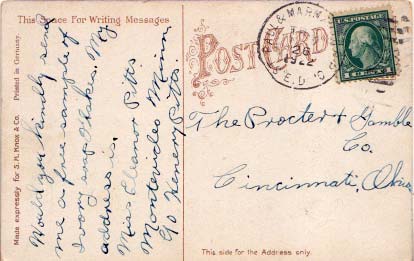 This Space For Writing Messages
Would you kindly send
me a free sample of
Ivory soap flakes. My
address is.
Miss Eleanor Pitts
Montevideo Minn
c/o Henery Pitts.
POST CARD
1922
U.S. POSTAGE
The Procter & Gamble
Co.
Cincinnati, Ohio
This side for the Address only.
Made expressly for S. H. Knox & Co. Printed in Germany.